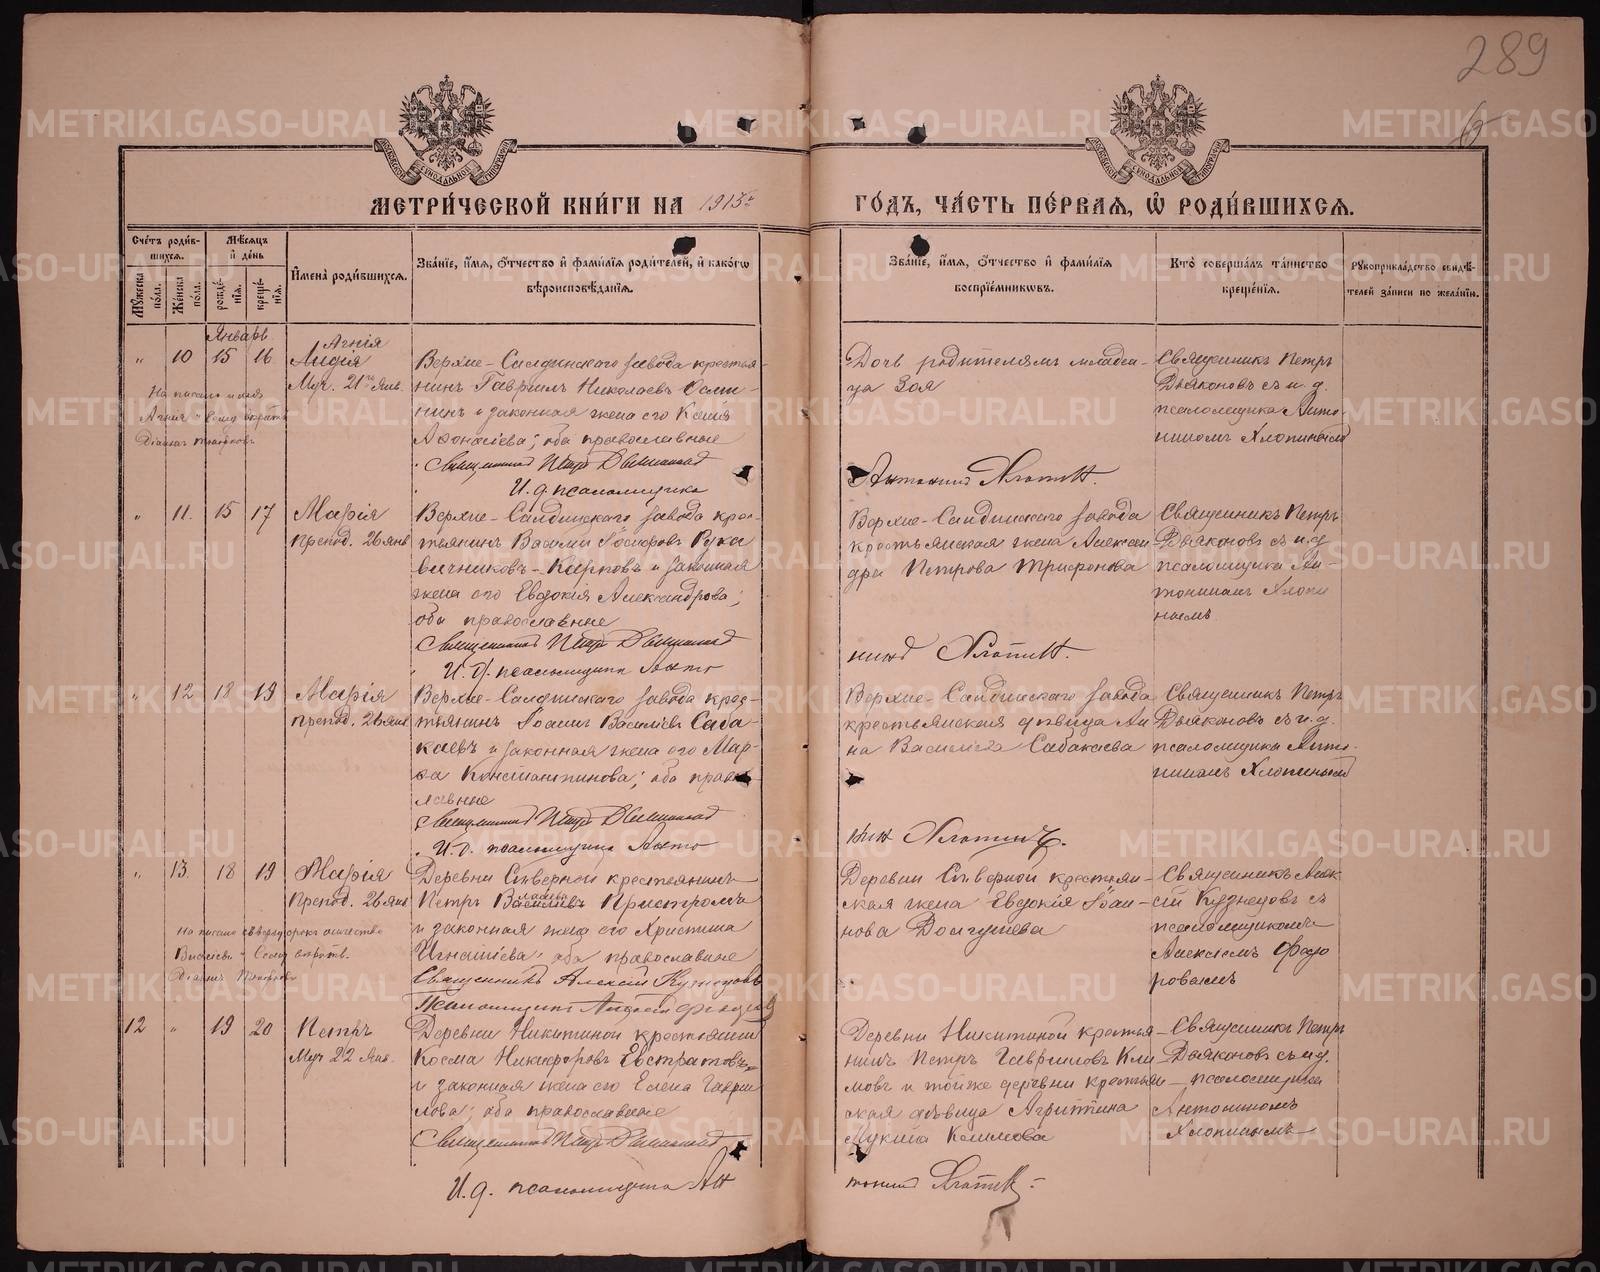 289
6
МЕТРИ́ЧЕСКОЙ КНИ́ГИ НА 1913 г
ГО́ДЪ, ЧА́СТЬ ПЕ́РВАЯ, Ѡ҆ РОДИ́ВШИХСЯ.
Сче́тъ роди́в-
шихся.
Мѣ́сяцъ
и҆ де́нь
Мꙋ́жеска по́ла.
Же́нска по́ла.
рожде́-
нїѧ.
креще́-
нїѧ.
И҆мена̀ роди́вшихся.
Зва́нїе, и҆́мя, о҆́тчество и҆ фами́лїя роди́телей, и҆ како́гѡ
вѣроисповѣ́данїѧ.
Зва́нїе, и҆́мя, о҆́тчество и҆ фами́лїя
воспрїе́мниковъ.
Кто̀ соверша́лъ та́инство
креще́нїѧ.
Рꙋкоприкла́дство свидѣ́-
телей за́писи по жела́нїю.
Январь
„ 10 15 16
Агнія
Лидія
Муч. 21го Янв.
Верхне-Салдинскаго завода крестья-
нинъ Гавриилъ Николаевъ Осми-
нинъ и законная жена его Ксенія
Афонасіева; оба православные
Священникъ Петръ Дьяконовъ
И. д. псаломщика
Дочь родителямъ младен-
ца Зоя
Антонинъ Хлопинъ.
Священникъ Петръ
Дьяконовъ съ и. д.
псаломщика Анто-
ниномъ Хлопинымъ
„ 11. 15 17
Марія
Препод. 26 Янв
Верхне-Салдинскаго завода крес-
тьянинъ Василій Ѳеодоровъ Рука
вичниковъ-Карповъ и законная
жена его Евдокія Александрова;
оба православные
Священникъ Петръ Дьяконовъ
И. д. псаломщика Анто
Верхне-Салдинскаго завода
крестьянская жена Алексан-
дра Петрова Трифонова
нинъ Хлопинъ.
Священникъ Петръ
Дьяконовъ съ и. д
псаломщика Ан-
тониномъ Хлопи
нымъ
„ 12 18 19
Марія
Препод. 26 Янв
Верхне-Салдинскаго завода крес-
тьянинъ Іоаннъ Василіевъ Саба-
каевъ и законная жена его Мар-
ѳа Константинова; оба право
лавные
Священникъ Петръ Дьяконовъ
И. д. псаломщика Анто
Верхне-Салдинскаго завода
крестьянская дѣвица Ан
на Василіева Сабакаева
нинъ Хлопинъ.
Священникъ Петръ
Дьяконовъ съ и. д.
псаломщика Анто-
ниномъ Хлопинымъ
„ 13. 18 19
Марія
Препод. 26 Янв
Деревни Сѣверной крестьянинъ
Петръ Василіевъ
и законная жена его Христина
Игнатіева; оба православные
Священникъ Алексій Кузнецовъ
Псаломщикъ Алексѣй Фёдоровъ
Деревни Сѣверной крестьян-
ская жена Евдокія Іоан-
нова Долгушева
Священникъ Алек
сій Кузнецовъ съ
псаломщикомъ
Алексѣемъ Федо
ровымъ
12 „ 19 20
Петръ
Муч 22 Янв.
Деревни Никитиной крестьянинъ
Косма Никифоровъ Евстратовъ
и законная жена его Елена Гаври
лова; оба православные
Священникъ Петръ Дьяконовъ
И. д. псаломщика Ан
Деревни Никитиной крестья-
нинъ Петръ Гавриловъ Кли-
мовъ и той же деревни крестьян-
ская дѣвица Агриппина
Лукина Климова
тонинъ Хлопинъ.
Священникъ Петръ
Дьяконовъ съ и д.
псаломщика
Антониномъ
Хлопинымъ
METRIKI.GASO-URAL.RU